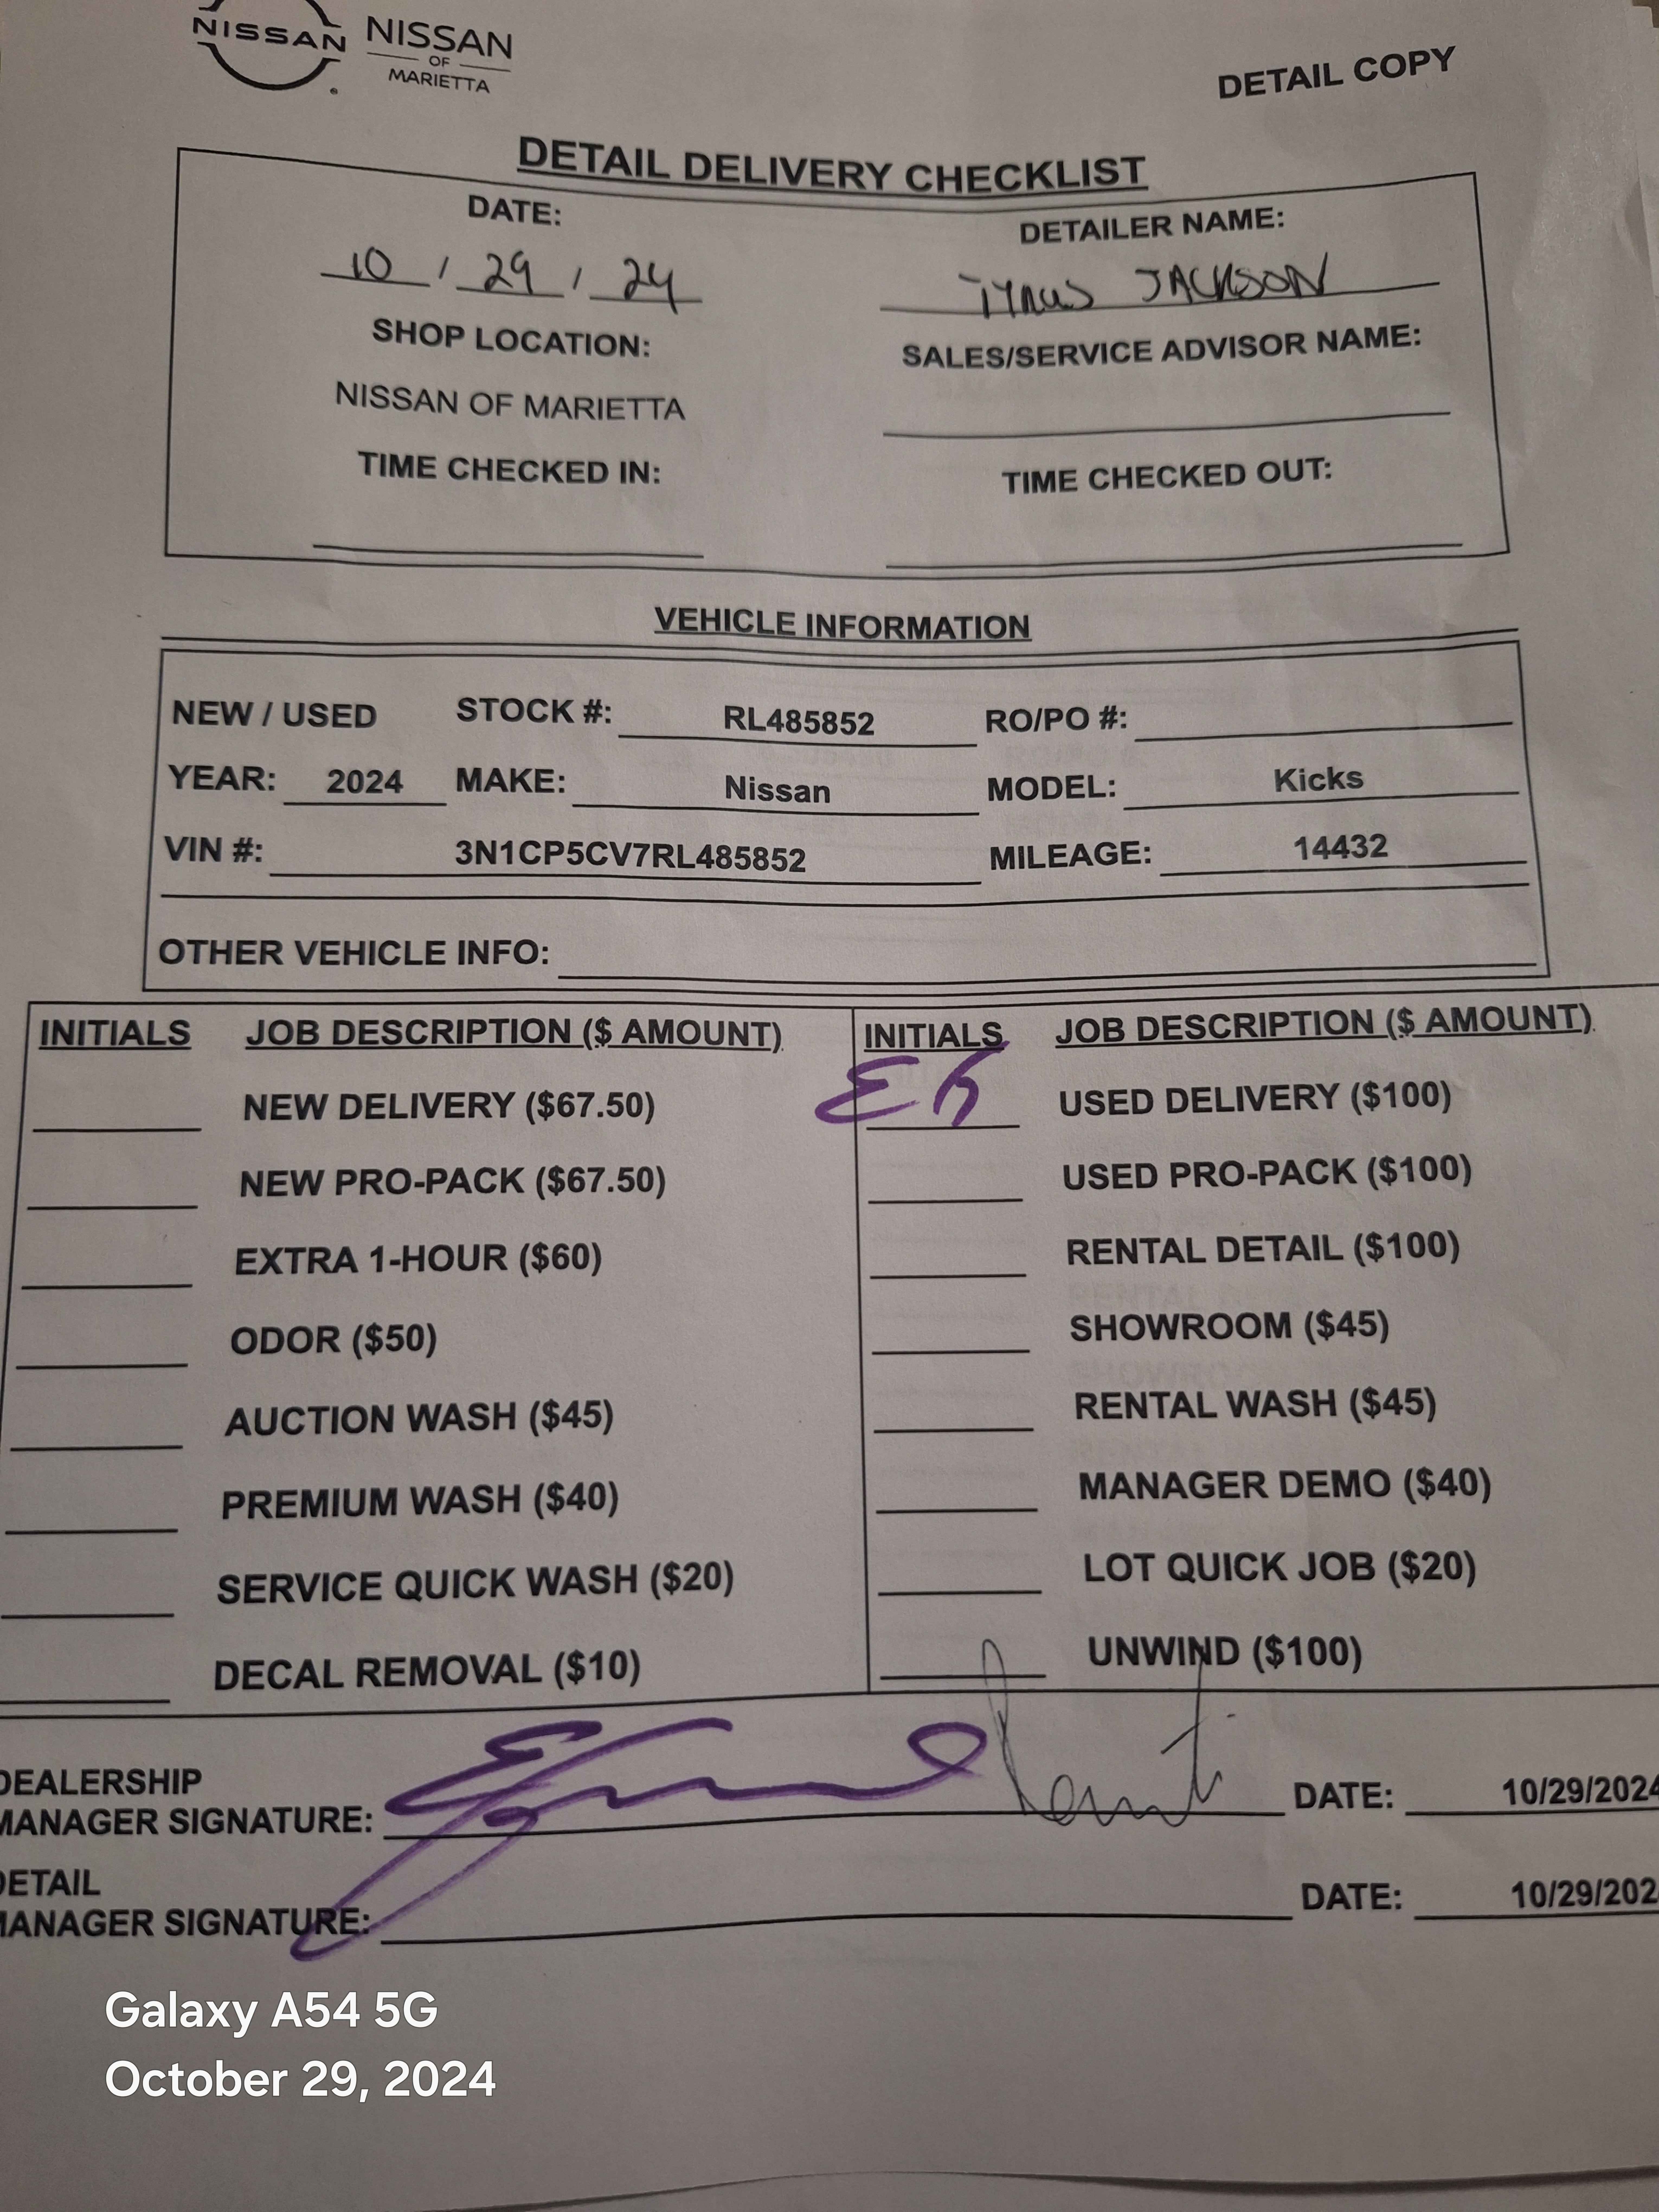 NISSAN NISSAN
OF
MARIETTA
DETAIL COPY
DETAIL DELIVERY CHECKLIST
DATE: DETAILER NAME:
10 / 29 / 24 JACKSON
SHOP LOCATION: SALES/SERVICE ADVISOR NAME:
NISSAN OF MARIETTA
TIME CHECKED IN: TIME CHECKED OUT:
VEHICLE INFORMATION
NEW / USED STOCK #: RL485852 RO/PO #:
YEAR: 2024 MAKE: Nissan MODEL: Kicks
VIN #: 3N1CP5CV7RL485852 MILEAGE: 14432
OTHER VEHICLE INFO:
INITIALS JOB DESCRIPTION ($ AMOUNT) INITIALS JOB DESCRIPTION ($ AMOUNT)
NEW DELIVERY ($67.50) EK USED DELIVERY ($100)
NEW PRO-PACK ($67.50) USED PRO-PACK ($100)
EXTRA 1-HOUR ($60) RENTAL DETAIL ($100)
ODOR ($50) SHOWROOM ($45)
AUCTION WASH ($45) RENTAL WASH ($45)
PREMIUM WASH ($40) MANAGER DEMO ($40)
SERVICE QUICK WASH ($20) LOT QUICK JOB ($20)
DECAL REMOVAL ($10) UNWIND ($100)
DEALERSHIP
MANAGER SIGNATURE: DATE: 10/29/2024
DETAIL
MANAGER SIGNATURE: DATE: 10/29/202
Galaxy A54 5G
October 29, 2024